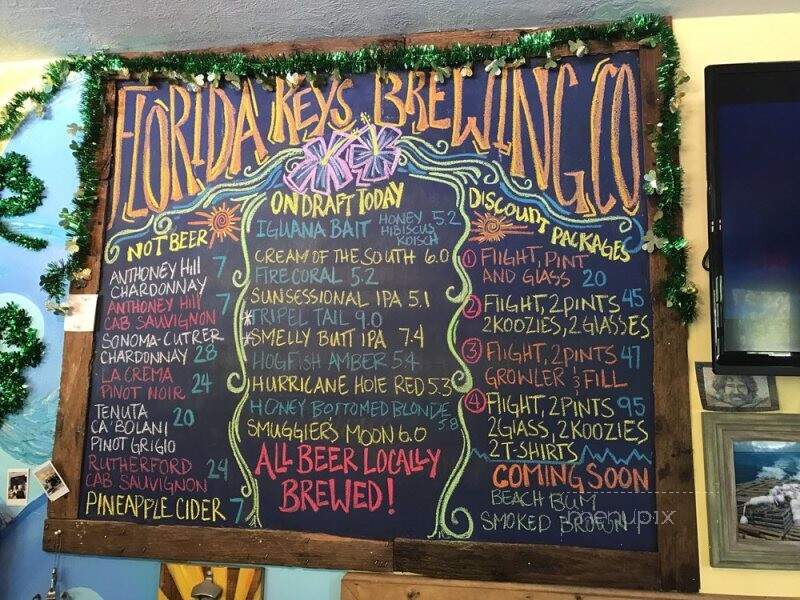 FLORIDA KEYS BREWING CO
NOT BEER
ANTHONEY HILL 7
CHARDONNAY
ANTHONEY HILL 7
CAB SAUVIGNON
SONOMA-CUTRER
CHARDONNAY 28
LA CREMA
PINOT NOIR 24
TENUTA 20
CA'BOLANI
PINOT GRIGIO
RUTHERFORD 24
CAB SAUVIGNON
PINEAPPLE CIDER 7
ON DRAFT TODAY
IGUANA BAIT HONEY 5.2
HIBISCUS
KOLSCH
CREAM OF THE SOUTH 6.0
FIRE CORAL 5.2
SUNSESSIONAL IPA 5.1
*TRIPEL TAIL 9.0
*SMELLY BUTT IPA 7.4
HOGFISH AMBER 5.4
HURRICANE HOLE RED 5.3
HONEY BOTTOMED BLONDE
5.8
SMUGGLER'S MOON 6.0
ALL BEER LOCALLY
BREWED!
DISCOUNT PACKAGES
1 FLIGHT, PINT
AND GLASS 20
2 FLIGHT, 2 PINTS 45
2 KOOZIES, 2 GLASSES
3 FLIGHT, 2 PINTS 47
GROWLER & FILL
4 FLIGHT, 2 PINTS 95
2 GLASS, 2 KOOZIES
2 T-SHIRTS
COMING SOON
BEACH BUM
SMOKED BROWN
menupix